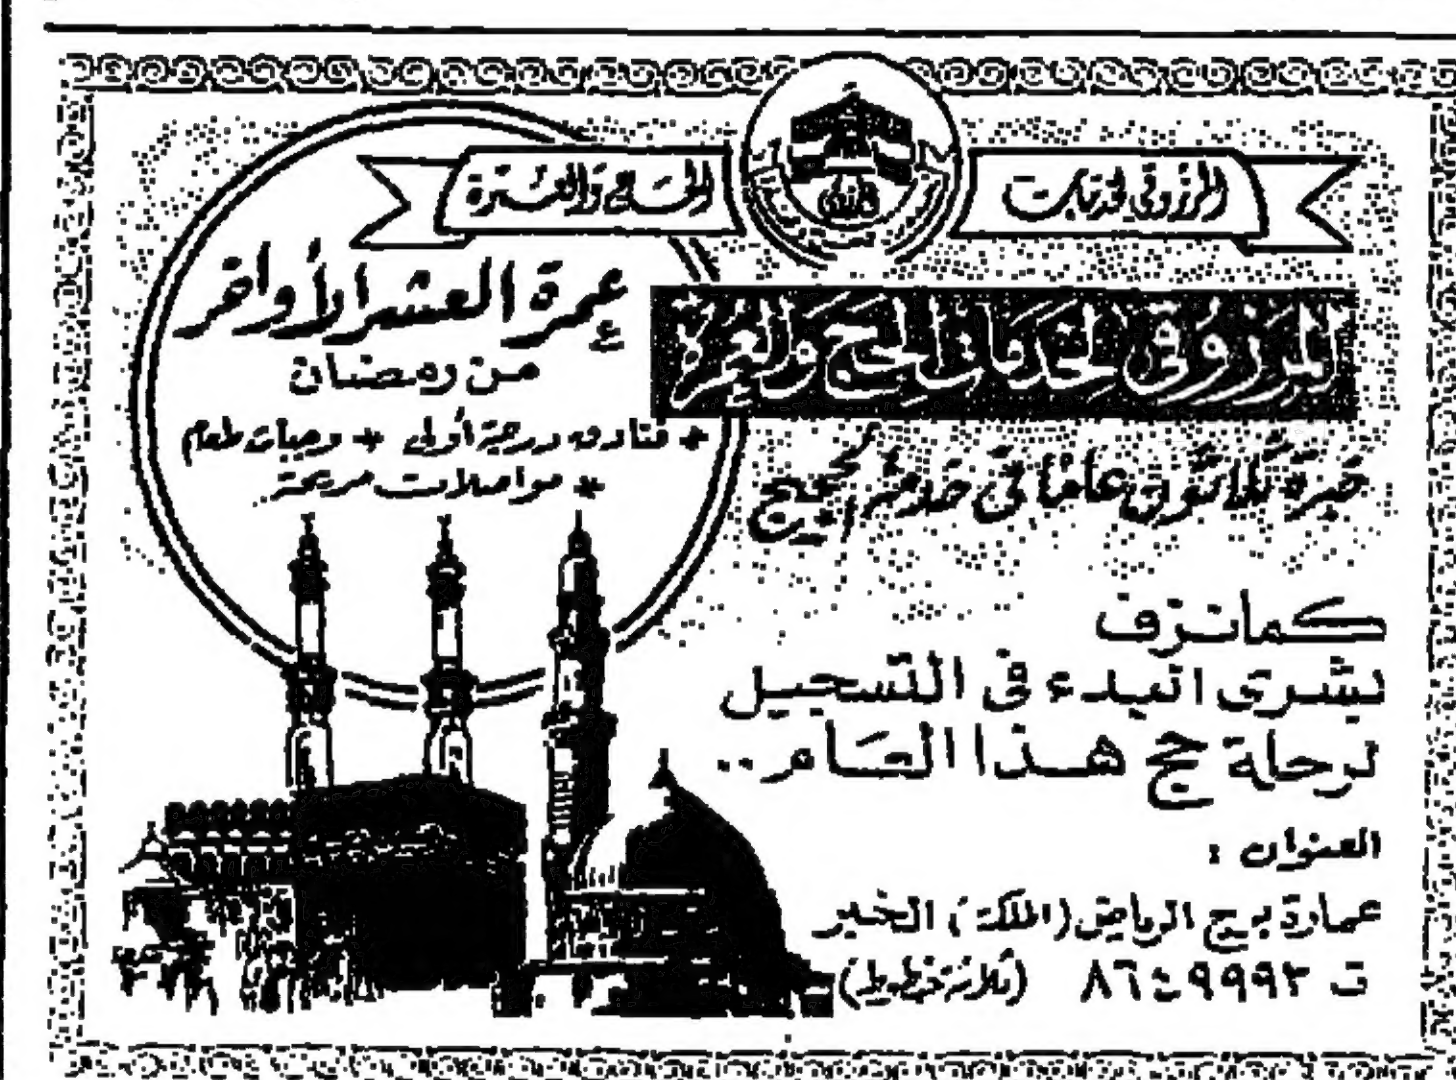 المرزوقي لخدمات
الحاج والعمرة
المرزوقى لخدمات الحج والعمرة
خبرة ثلاثون عامًا في خدمة الحجيج
عمرة العشر الأواخر
من رمضان
* فنادق درجة أولى * وجبات طعام
* مواصلات مريحة
كما نزف
بشرى البدء في التسجيل
لرحلة حج هذا العام..
العنوان :
عمارة برج الرياض (الملكة) الخبر
ت ٨٦٤٩٩٩٢ (ثلاثة خطوط)